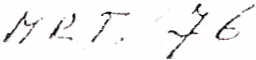 MRT. 76